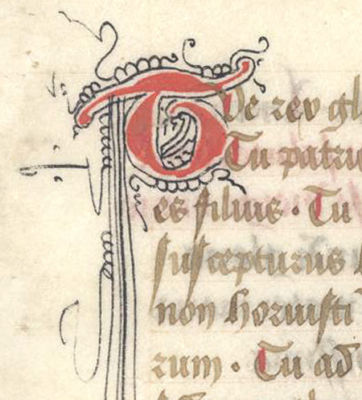 Tu rex gl
Tu patri
es filius · Tu
suscepturus
non horuisti
rum · Tu ad